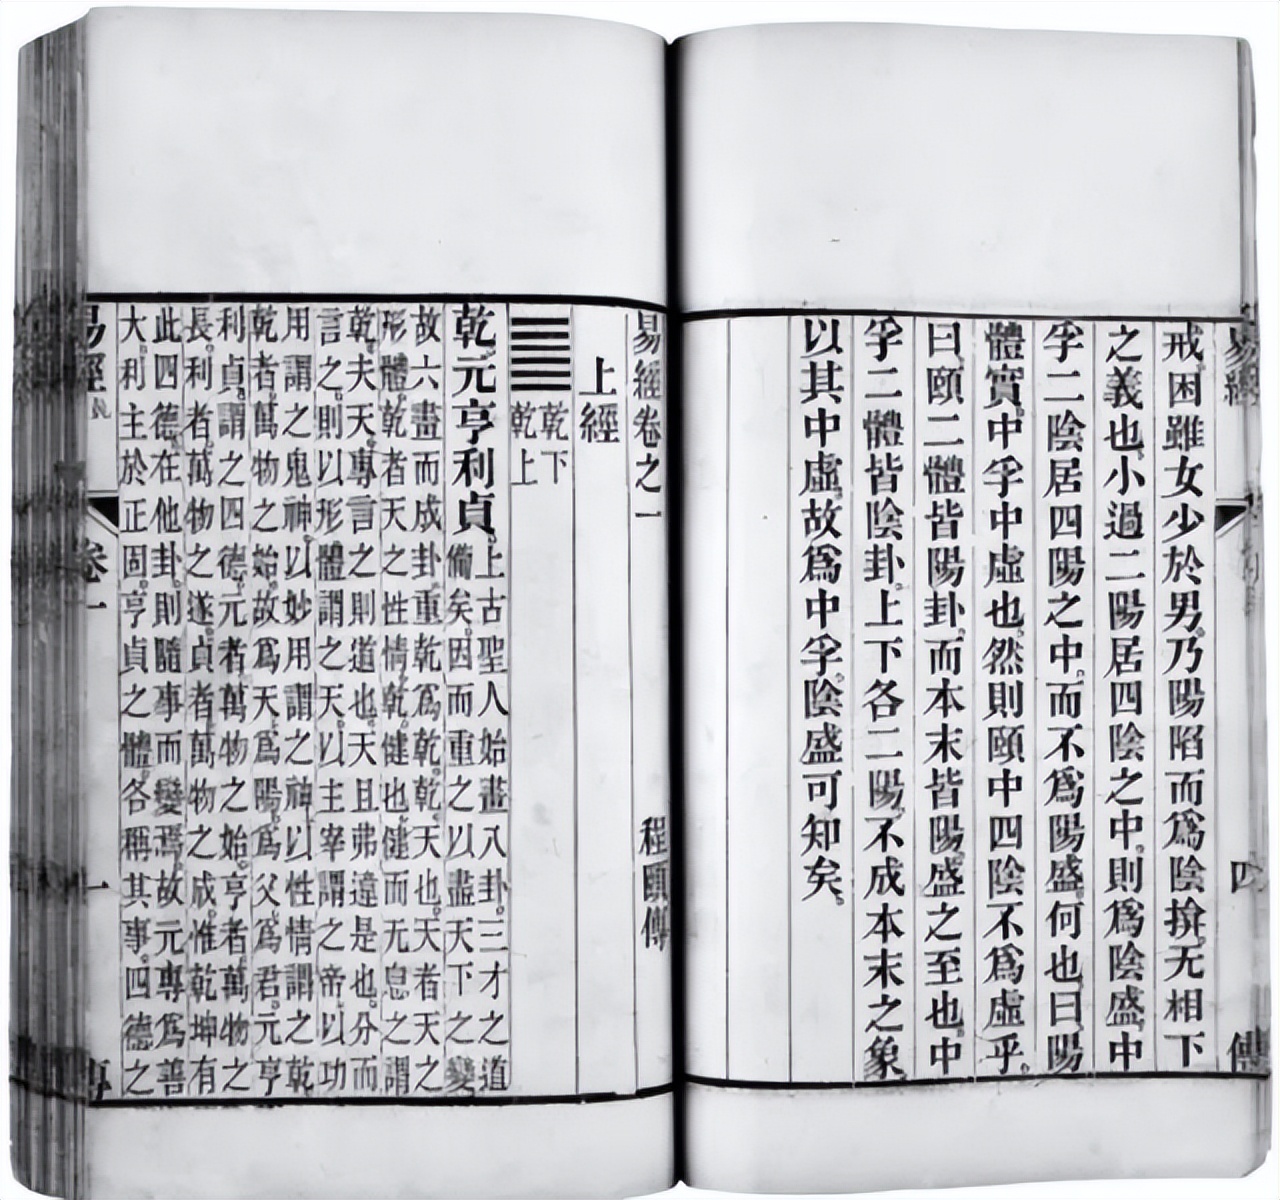 易經
四
傳
戒。困雖女少於男。乃陽陷而爲陰揜。无相下
之義也。小過二陽居四陰之中。則爲陰盛。中
孚二陰居四陽之中。而不爲陽盛。何也。曰。陽
體實。中孚中虛也。然則頤中四陰不爲虛乎。
曰。頤二體皆陽卦。而本末皆陽。盛之至也。中
孚二體皆陰卦。上下各二陽。不成本末之象。
以其中虛。故爲中孚。陰盛可知矣。
易經卷之一
程頤傳
上經
乾下
乾上
乾。元亨利貞。
上古聖人始畫八卦。三才之道
備矣。因而重之。以盡天下之變。
故六畫而成卦。重乾爲乾。乾。天也。天者天之
形體。乾者天之性情。乾。健也。健而无息之謂
乾。夫天。專言之則道也。天且弗違是也。分而
言之。則以形體謂之天。以主宰謂之帝。以功
用謂之鬼神。以妙用謂之神。以性情謂之乾。
乾者。萬物之始。故爲天。爲陽。爲父。爲君。元亨
利貞。謂之四德。元者萬物之始。亨者。萬物之
長。利者。萬物之遂。貞者。萬物之成。惟乾坤有
此四德。在他卦。則隨事而變焉。故元專爲善
大。利主於正固。亨貞之體。各稱其事。四德之
易經
卷一
一
傳